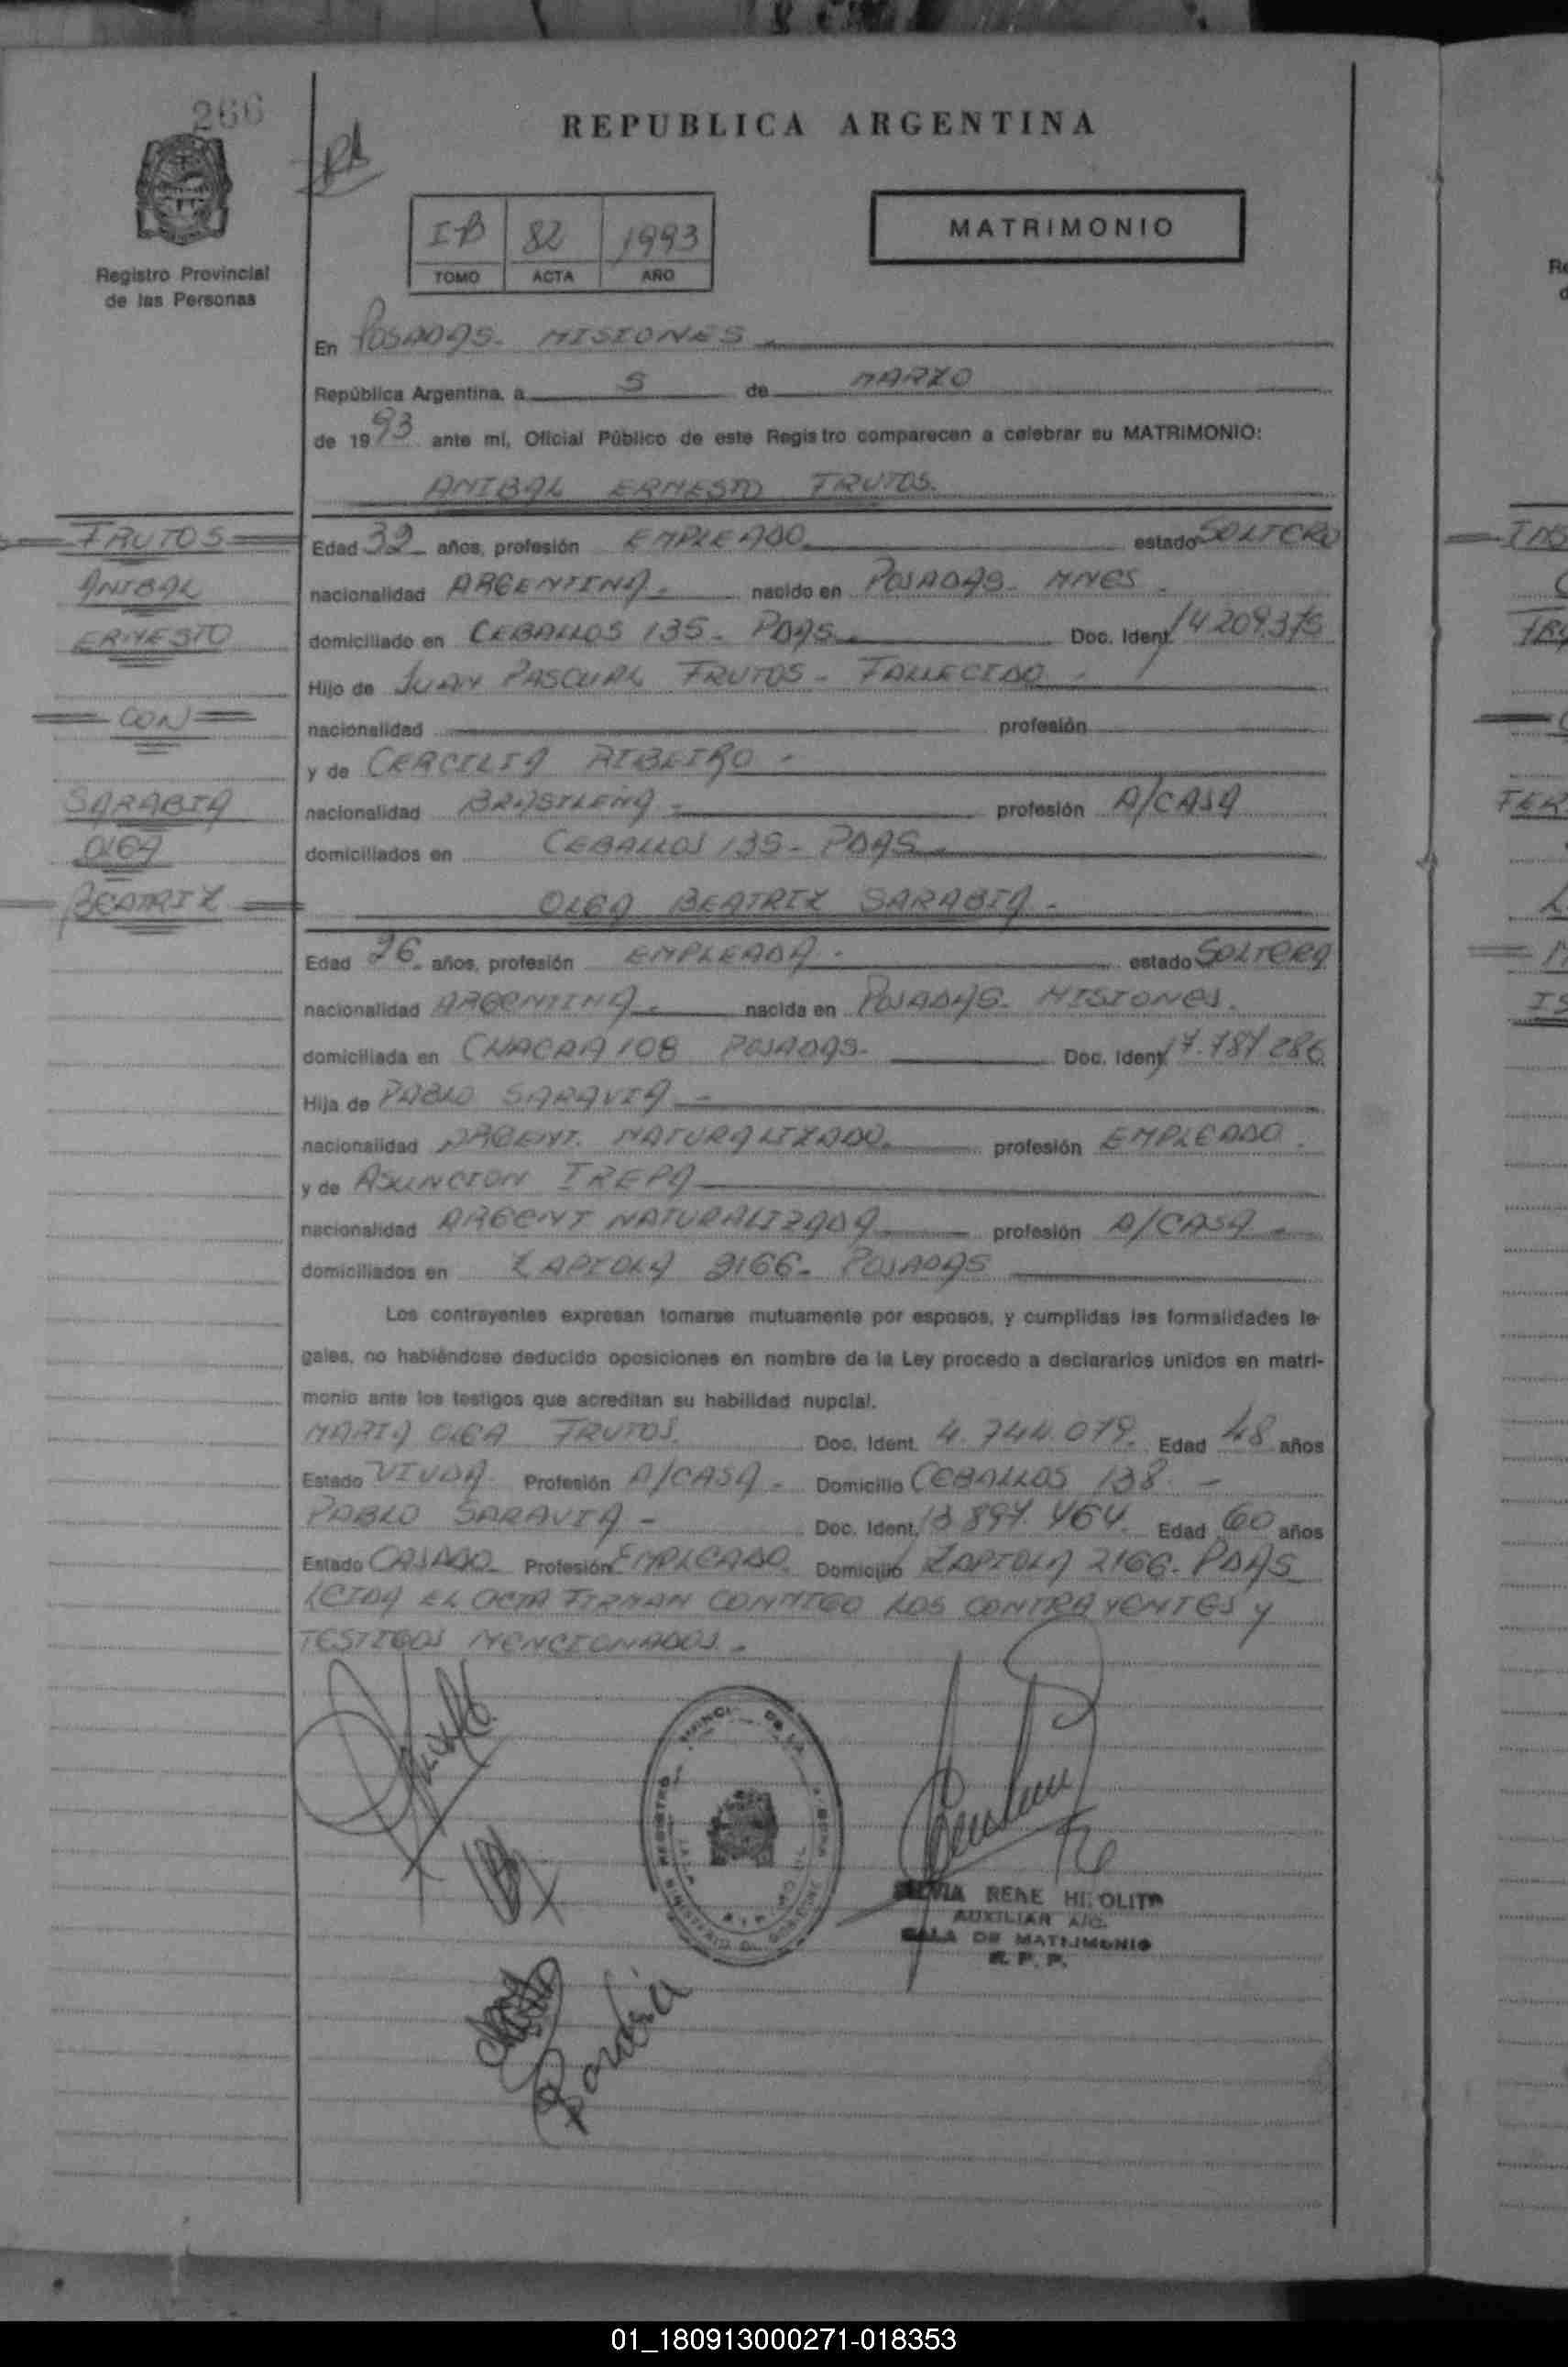 266
REPUBLICA ARGENTINA
IB 82 1993
TOMO ACTA AÑO
MATRIMONIO
Registro Provincial
de las Personas
En POSADAS - MISIONES
República Argentina, a 5 de MARZO
de 1993 ante mí, Oficial Público de este Registro comparecen a celebrar su MATRIMONIO:
ANIBAL ERNESTO FRUTOS.
FRUTOS
ANIBAL
ERNESTO
CON
SARABIA
OLGA
BEATRIZ
Edad 32 años, profesión EMPLEADO estado SOLTERO
nacionalidad ARGENTINA - nacido en POSADAS - MNES.
domiciliado en CEBALLOS 135 - PDAS - Doc. Ident. 14.209.375
Hijo de JUAN PASCUAL FRUTOS - FALLECIDO -
nacionalidad profesión
y de CERCILIA RIBEIRO -
nacionalidad BRASILEÑA - profesión A/CASA
domiciliados en CEBALLOS 135 - PDAS -
OLGA BEATRIZ SARABIA -
Edad 26 años, profesión EMPLEADA - estado SOLTERA
nacionalidad ARGENTINA - nacida en POSADAS - MISIONES.
domiciliada en CHACRA 108 POSADAS - Doc. Ident. 17.787.286
Hija de PABLO SARAVIA -
nacionalidad ARGENT. NATURALIZADO profesión EMPLEADO.
y de ASUNCION IREPA
nacionalidad ARGENT NATURALIZADA profesión A/CASA -
domiciliados en ZAPIOLA 2166 - POSADAS
Los contrayentes expresan tomarse mutuamente por esposos, y cumplidas las formalidades le-
gales, no habiéndose deducido oposiciones en nombre de la Ley procedo a declararlos unidos en matri-
monio ante los testigos que acreditan su habilidad nupcial.
MARIA OLGA FRUTOS. Doc. Ident. 4.744.079. Edad 48 años
Estado VIUDA Profesión A/CASA - Domicilio CEBALLOS 138 -
PABLO SARAVIA - Doc. Ident. 13.897.464. Edad 60 años
Estado CASADO Profesión EMPLEADO Domicilio ZAPIOLA 2166 - PDAS
LEIDA EL ACTA FIRMAN CONMIGO LOS CONTRAYENTES Y
TESTIGOS MENCIONADOS -
REGISTRO PROVINCIAL DE LAS PERSONAS
MINISTERIO DE GOBIERNO
SILVIA RENE HIPOLITO
AUXILIAR A/C.
SALA DE MATRIMONIO
R. P. P.
Sarabia
01_180913000271-018353